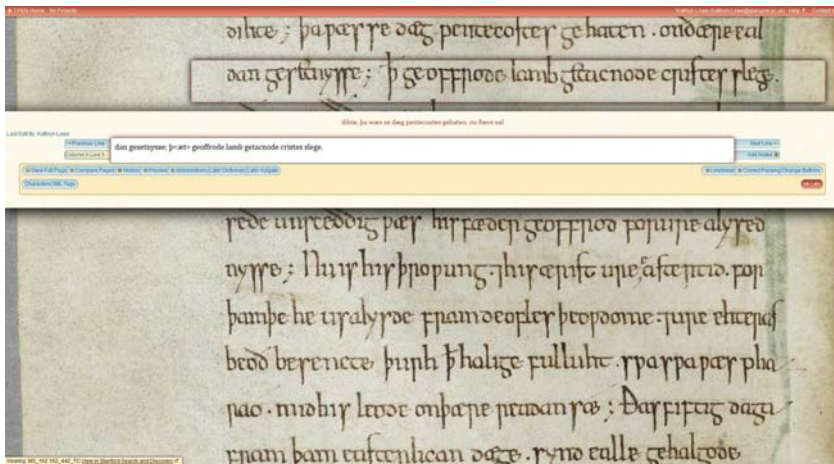 TPEN Home My Projects Help Contact
dihte; þa wæs se dæg pentecostes gehaten. on ðære eal
dan gesetnysse; ꝥ geoffrode lamb getacnode cristes slege.
dihte; þa wæs se dæg pentecostes gehaten. on ðære eal
Last Edit By: Kathryn Lowe
<<Previous Line
Next Line>>
dan gesetnysse; þ<æt> geoffrode lamb getacnode cristes slege.
Add Notes
View Full Page Compare Pages History Preview Abbreviations Latin Dictionary Latin Vulgate
Linebreak Correct Parsing Change Buttons
Characters XML Tags
sede unscæððig wæs his fæder geoffrod for ure alysed
nysse; Nu is his þrowung. ⁊ his ærist ure eastertid. for
þam þe he us alysde fram deofles þeowdome. ⁊ ure ehteras
beoð besencte þurh ꝥ halige fulluht. swa swa wæs pha
rao. mid his leode on þære readan sæ; Ðas fiftig daga
fram þam easterlican dæge. synd ealle gehalgode
View in Stanford Search and Discovery